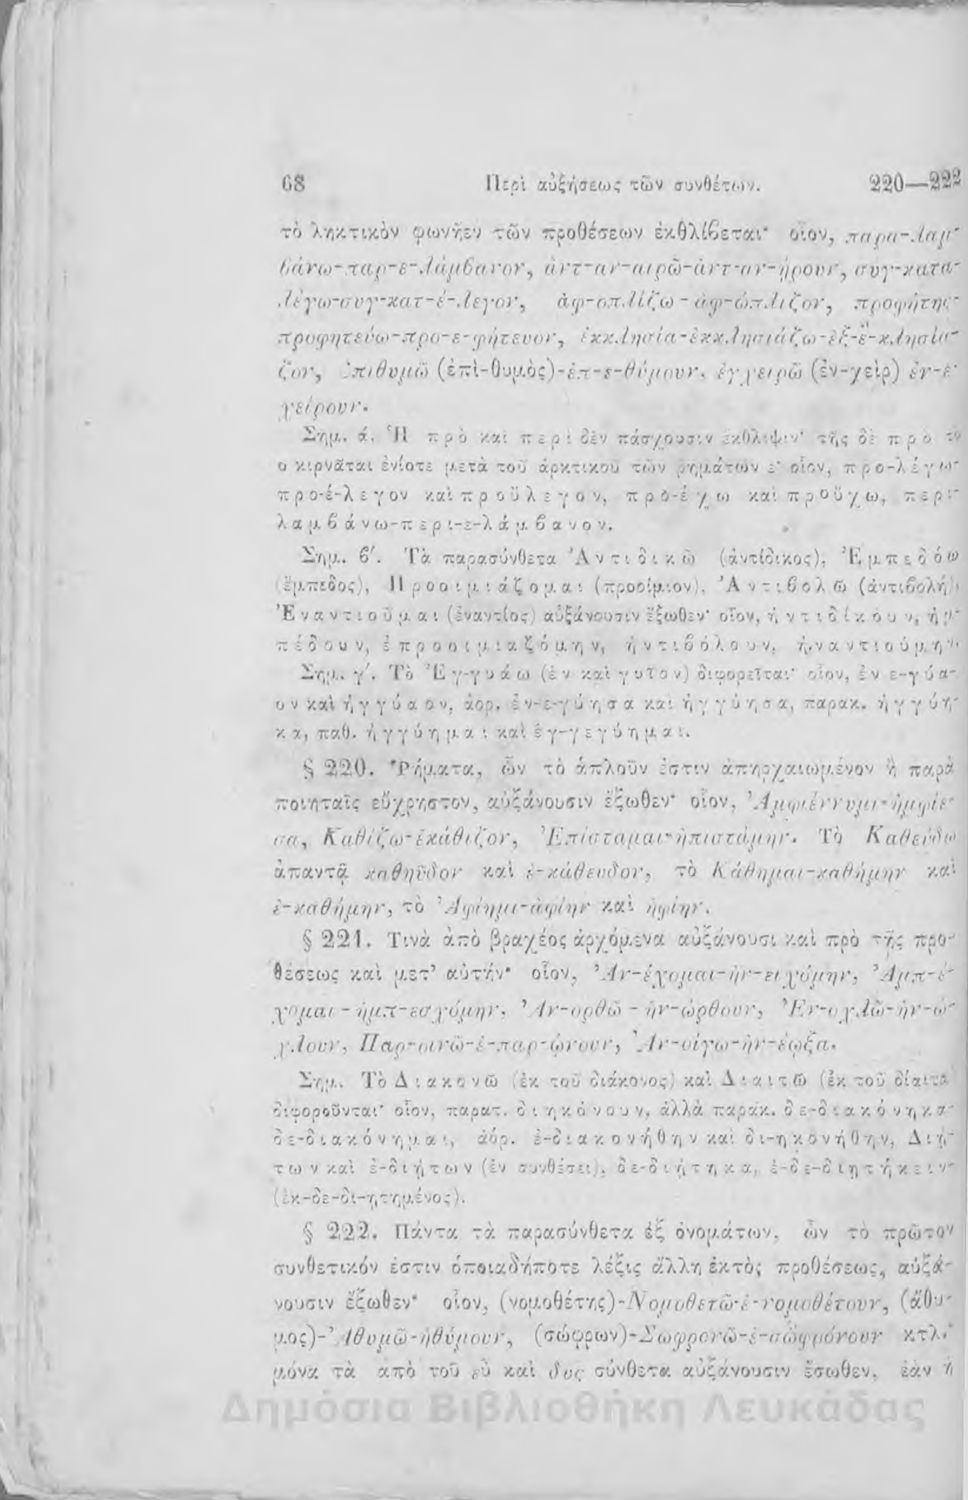 68 Περὶ αὐξήσεως τῶν συνθέτων. 220—222
τὸ ληκτικὸν φωνῆεν τῶν προθέσεων ἐκθλίβεται· οἷον, παρα-λαμ-
βάνω-παρ-ε-λάμβανον, ἀντ-αν-αιρῶ-ἀντ-αν-ῄρουν, συγ-κατα-
λέγω-συγ-κατ-έ-λεγον, ἀφ-οπλίζω - ἀφ-ώπλιζον, προφήτης-
προφητεύω-προ-ε-φήτευον, ἐκκλησία-ἐκκλησιάζω-ἐξ-ε-κλησία-
ζον, ἐπιθυμῶ (ἐπὶ-θυμὸς)-ἐπ-ε-θύμουν, ἐγχειρῶ (ἐν-χεὶρ) ἐν-ε-
χείρουν.
Σημ. ά. Ἡ πρὸ καὶ περὶ δὲν πάσχουσιν ἔκθλιψιν· τῆς δὲ πρὸ τὸ
ο κιρνᾶται ἐνίοτε μετὰ τοῦ ἀρκτικοῦ τῶν ῥημάτων ε· οἷον, προ-λέγω-
προ-έ-λεγον καὶ προὔλεγον, προ-έχω καὶ προὔχω, περι-
λαμβάνω-περι-ε-λάμβανον.
Σημ. β´. Τὰ παρασύνθετα Ἀντιδικῶ (ἀντίδικος), Ἐμπεδόω
(ἔμπεδος), Προοιμιάζομαι (προοίμιον), Ἀντιβολῶ (ἀντιβολή)
Ἐναντιοῦμαι (ἐναντίος) αὐξάνουσιν ἔξωθεν· οἷον, ἠντιδίκουν, ἠμ-
πέδουν, ἐπροοιμιαζόμην, ἠντιβόλουν, ἠναντιούμην.
Σημ. γ´. Τὸ Ἐγ-γυάω (ἐν καὶ γυῖον) διφορεῖται· οἷον, ἐνε-γύα-
ον καὶ ἠγγύαον, ἀορ. ἐν-ε-γύησα καὶ ἠγγύησα, παρακ. ἠγγύη-
κα, παθ. ἠγγύημαι καὶ ἐγ-γεγύημαι.
§ 220. Ῥήματα, ὧν τὸ ἁπλοῦν ἐστιν ἀπηρχαιωμένον ἢ παρὰ
ποιηταῖς εὔχρηστον, αὐξάνουσιν ἔξωθεν· οἷον, Ἀμφιέννυμι-ἠμφίε-
σα, Καθίζω-ἐκάθιζον, Ἐπίσταμαι-ἠπιστάμην. Τὸ Καθεύδω
ἀπαντᾷ καθηῦδον καὶ ἐ-κάθευδον, τὸ Κάθημαι-καθήμην καὶ
ἐ-καθήμην, τὸ Ἀφίημι-ἀφίην καὶ ἠφίην.
§ 221. Τινὰ ἀπὸ βραχέος ἀρχόμενα αὐξάνουσι καὶ πρὸ τῆς προ-
θέσεως καὶ μετ’ αὐτήν· οἷον, Ἀν-έχομαι-ἠν-ειχόμην, Ἀμπ-έ-
χομαι - ἠμπ-εσχόμην, Ἀν-ορθῶ - ἠν-ώρθουν, Ἐν-οχλῶ-ἠν-ώ-
χλουν, Παρ-οινῶ-ἐ-παρ-ῴνουν, Ἀν-οίγω-ἠν-έῳξα.
Σημ. Τὸ Διακονῶ (ἐκ τοῦ διάκονος) καὶ Διαιτῶ (ἐκ τοῦ δίαιτα)
διφοροῦνται· οἷον, παρατ. διηκόνουν, ἀλλὰ παρακ. δε-διακόνηκα-
δε-διακόνημαι, ἀόρ. ἐ-διακονήθην καὶ δι-ηκονήθην, Διῄ-
των καὶ ἐ-διῄτων (ἐν συνθέσει), δε-διῄτηκα, ἐ-δε-διῃτήκειν-
(ἐκ-δε-δι-ῃτημένος).
§ 222. Πάντα τὰ παρασύνθετα ἐξ ὀνομάτων, ὧν τὸ πρῶτον
συνθετικόν ἐστιν ὁποιαδήποτε λέξις ἄλλη ἐκτὸς προθέσεως, αὐξά-
νουσιν ἔξωθεν· οἷον, (νομοθέτης)-Νομοθετῶ-ἐ-νομοθέτουν, (ἄθυ-
μος)-Ἀθυμῶ-ἠθύμουν, (σώφρων)-Σωφρονῶ-ἐ-σωφρόνουν κτλ.·
μόνα τὰ ἀπὸ τοῦ εὖ καὶ δυς σύνθετα αὐξάνουσιν ἔσωθεν, ἐὰν ἡ
Δημόσια Βιβλιοθήκη Λευκάδας